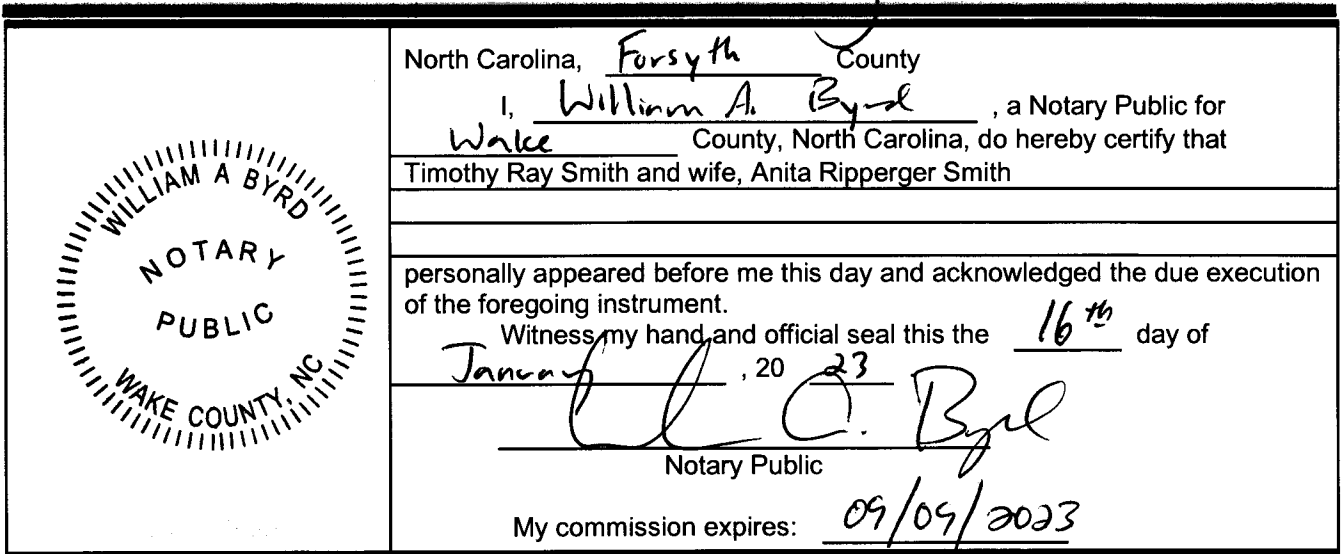 WILLIAM A BYRD
NOTARY
PUBLIC
WAKE COUNTY, NC
North Carolina, Forsyth County
I, William A. Byrd, a Notary Public for
Wake County, North Carolina, do hereby certify that
Timothy Ray Smith and wife, Anita Ripperger Smith
personally appeared before me this day and acknowledged the due execution
of the foregoing instrument.
Witness my hand and official seal this the 16th day of
January, 20 23
A. Byrd
Notary Public
My commission expires: 09/09/2023